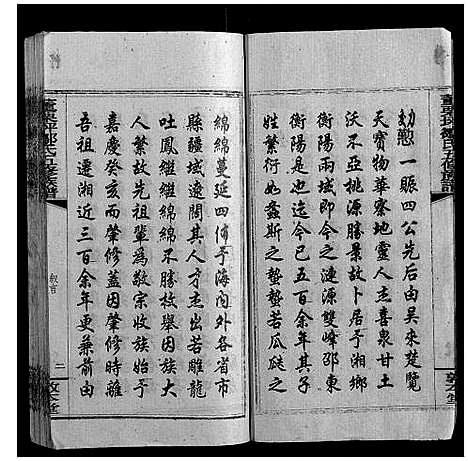 勅愬一賬四公先后由吴來楚覽
天寶物華察地靈人杰喜泉甘土
沃不亞桃源勝景故卜居于湘鄉
衡陽兩域即今之漣源雙峰邵東
衡陽是也迄今已五百余年其子
姓繁衍如螽斯之蟄蟄若瓜瓞之
綿綿蔓延四傅于海内外各省市
縣疆域遼闊其人才杰出若雕龍
吐鳳繼繼綿綿不勝枚舉因族大
人繁故先祖輩爲敬宗收族始于
嘉慶癸亥而肇修蓋因肇修時離
吾祖遷湘近三百余年更兼前由
叙言
二
敦本堂